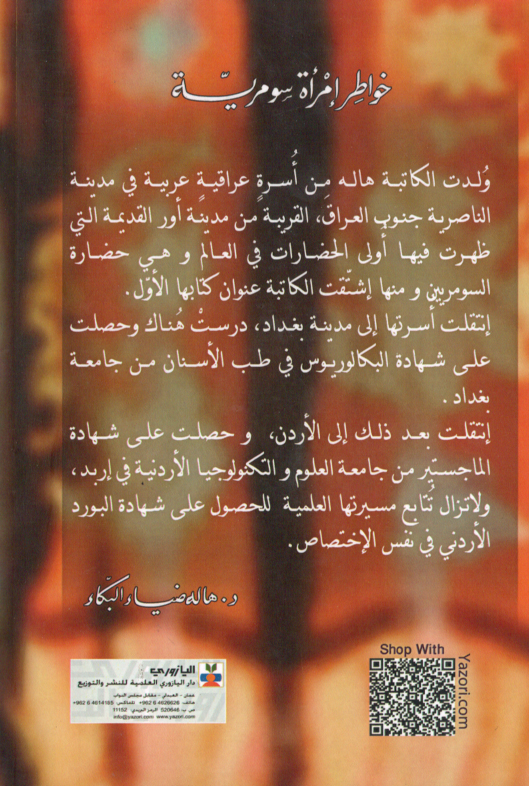 خواطِر إمْرأة سومريّة
وُلدت الكاتبة هاله مِن أُسرةٍ عراقيةٍ عربية في مدينة
الناصرية جنوب العراق، القريبة من مدينة أور القديمة التي
ظهرت فيها أولى الحضارات في العالم و هي حضارة
السومريين و منها إشتّقت الكاتبة عنوان كتابها الأوّل.
إنتقلت أسرتها إلى مدينة بغداد، درستْ هُناك وحصلت
على شهادة البكالوريوس في طب الأسنان من جامعة
بغداد.
إنتقلت بعد ذلك إلى الأردن، و حصلت على شهادة
الماجستير من جامعة العلوم و التكنولوجيا الأردنية في إربد،
ولاتزال تُتابع مسيرتها العلمية للحصول على شهادة البورد
الأردني في نفس الإختصاص.
د. هاله ضياء البكّاء
Shop With
Yazori.com
اليازوري
دار اليازوري العلمية للنشر والتوزيع
عمان - العبدلي - مقابل مجلس النواب
هاتف: 4626626 6 962+ تلفاكس: 4614185 6 962+
ص.ب 520646 الرمز البريدي: 11152
info@yazori.com www.yazori.com